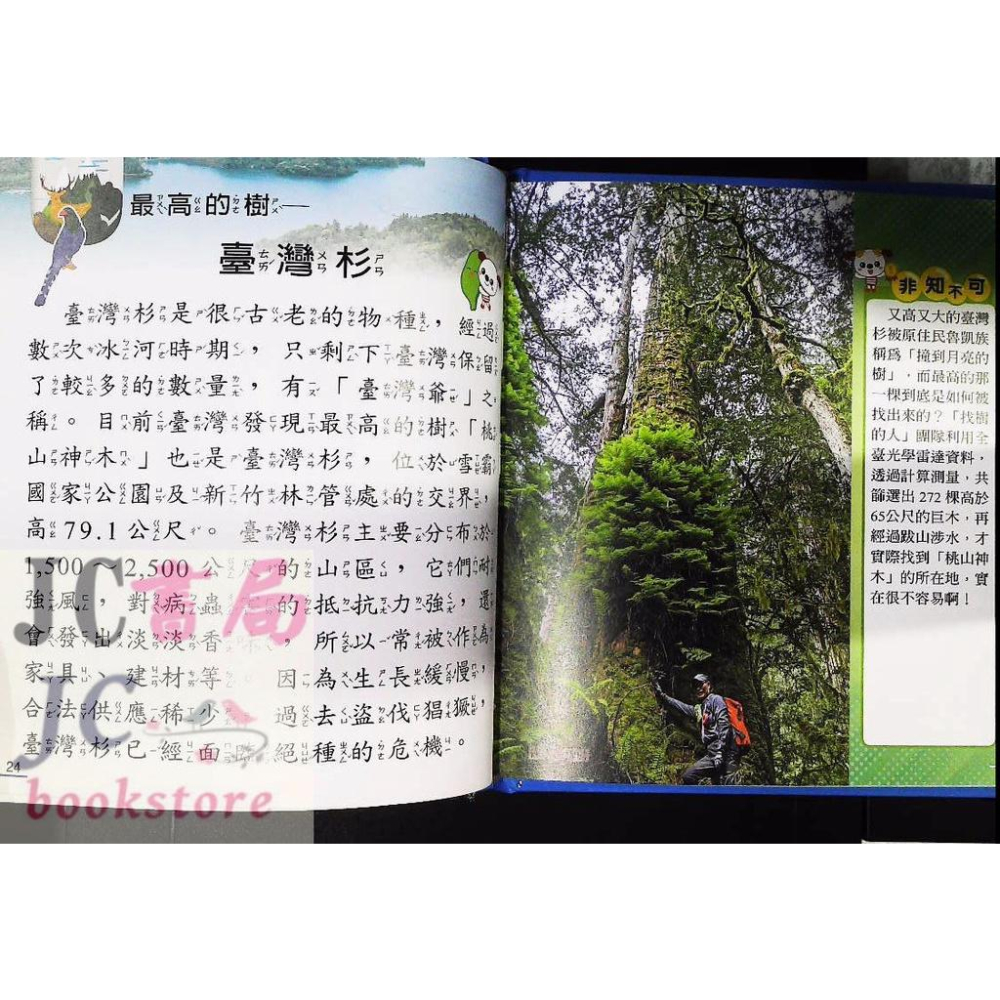 最高的樹—
臺灣杉
臺灣杉是很古老的物種，經過
數次冰河時期，只剩下臺灣保留
了較多的數量，有「臺灣爺」之
稱。目前臺灣發現最高的樹「桃
山神木」也是臺灣杉，位於雪霸
國家公園及新竹林管處的交界，
高79.1公尺。臺灣杉主要分布於
1,500～2,500公尺的山區，它們耐
強風，對病蟲的抵抗力強，還
會發出淡淡香，所以常被作為
家具、建材等因為生長緩慢，
合法供應稀少過去盜伐猖獗，
臺灣杉已經面臨絕種的危機。
24
JC書局
JC
bookstore
非知不可
又高又大的臺灣
杉被原住民魯凱族
稱為「撞到月亮的
樹」，而最高的那
一棵到底是如何被
找出來的？「找樹
的人」團隊利用全
臺光學雷達資料，
透過計算測量，共
篩選出272棵高於
65公尺的巨木，再
經過跋山涉水，才
實際找到「桃山神
木」的所在地，實
在很不容易啊！